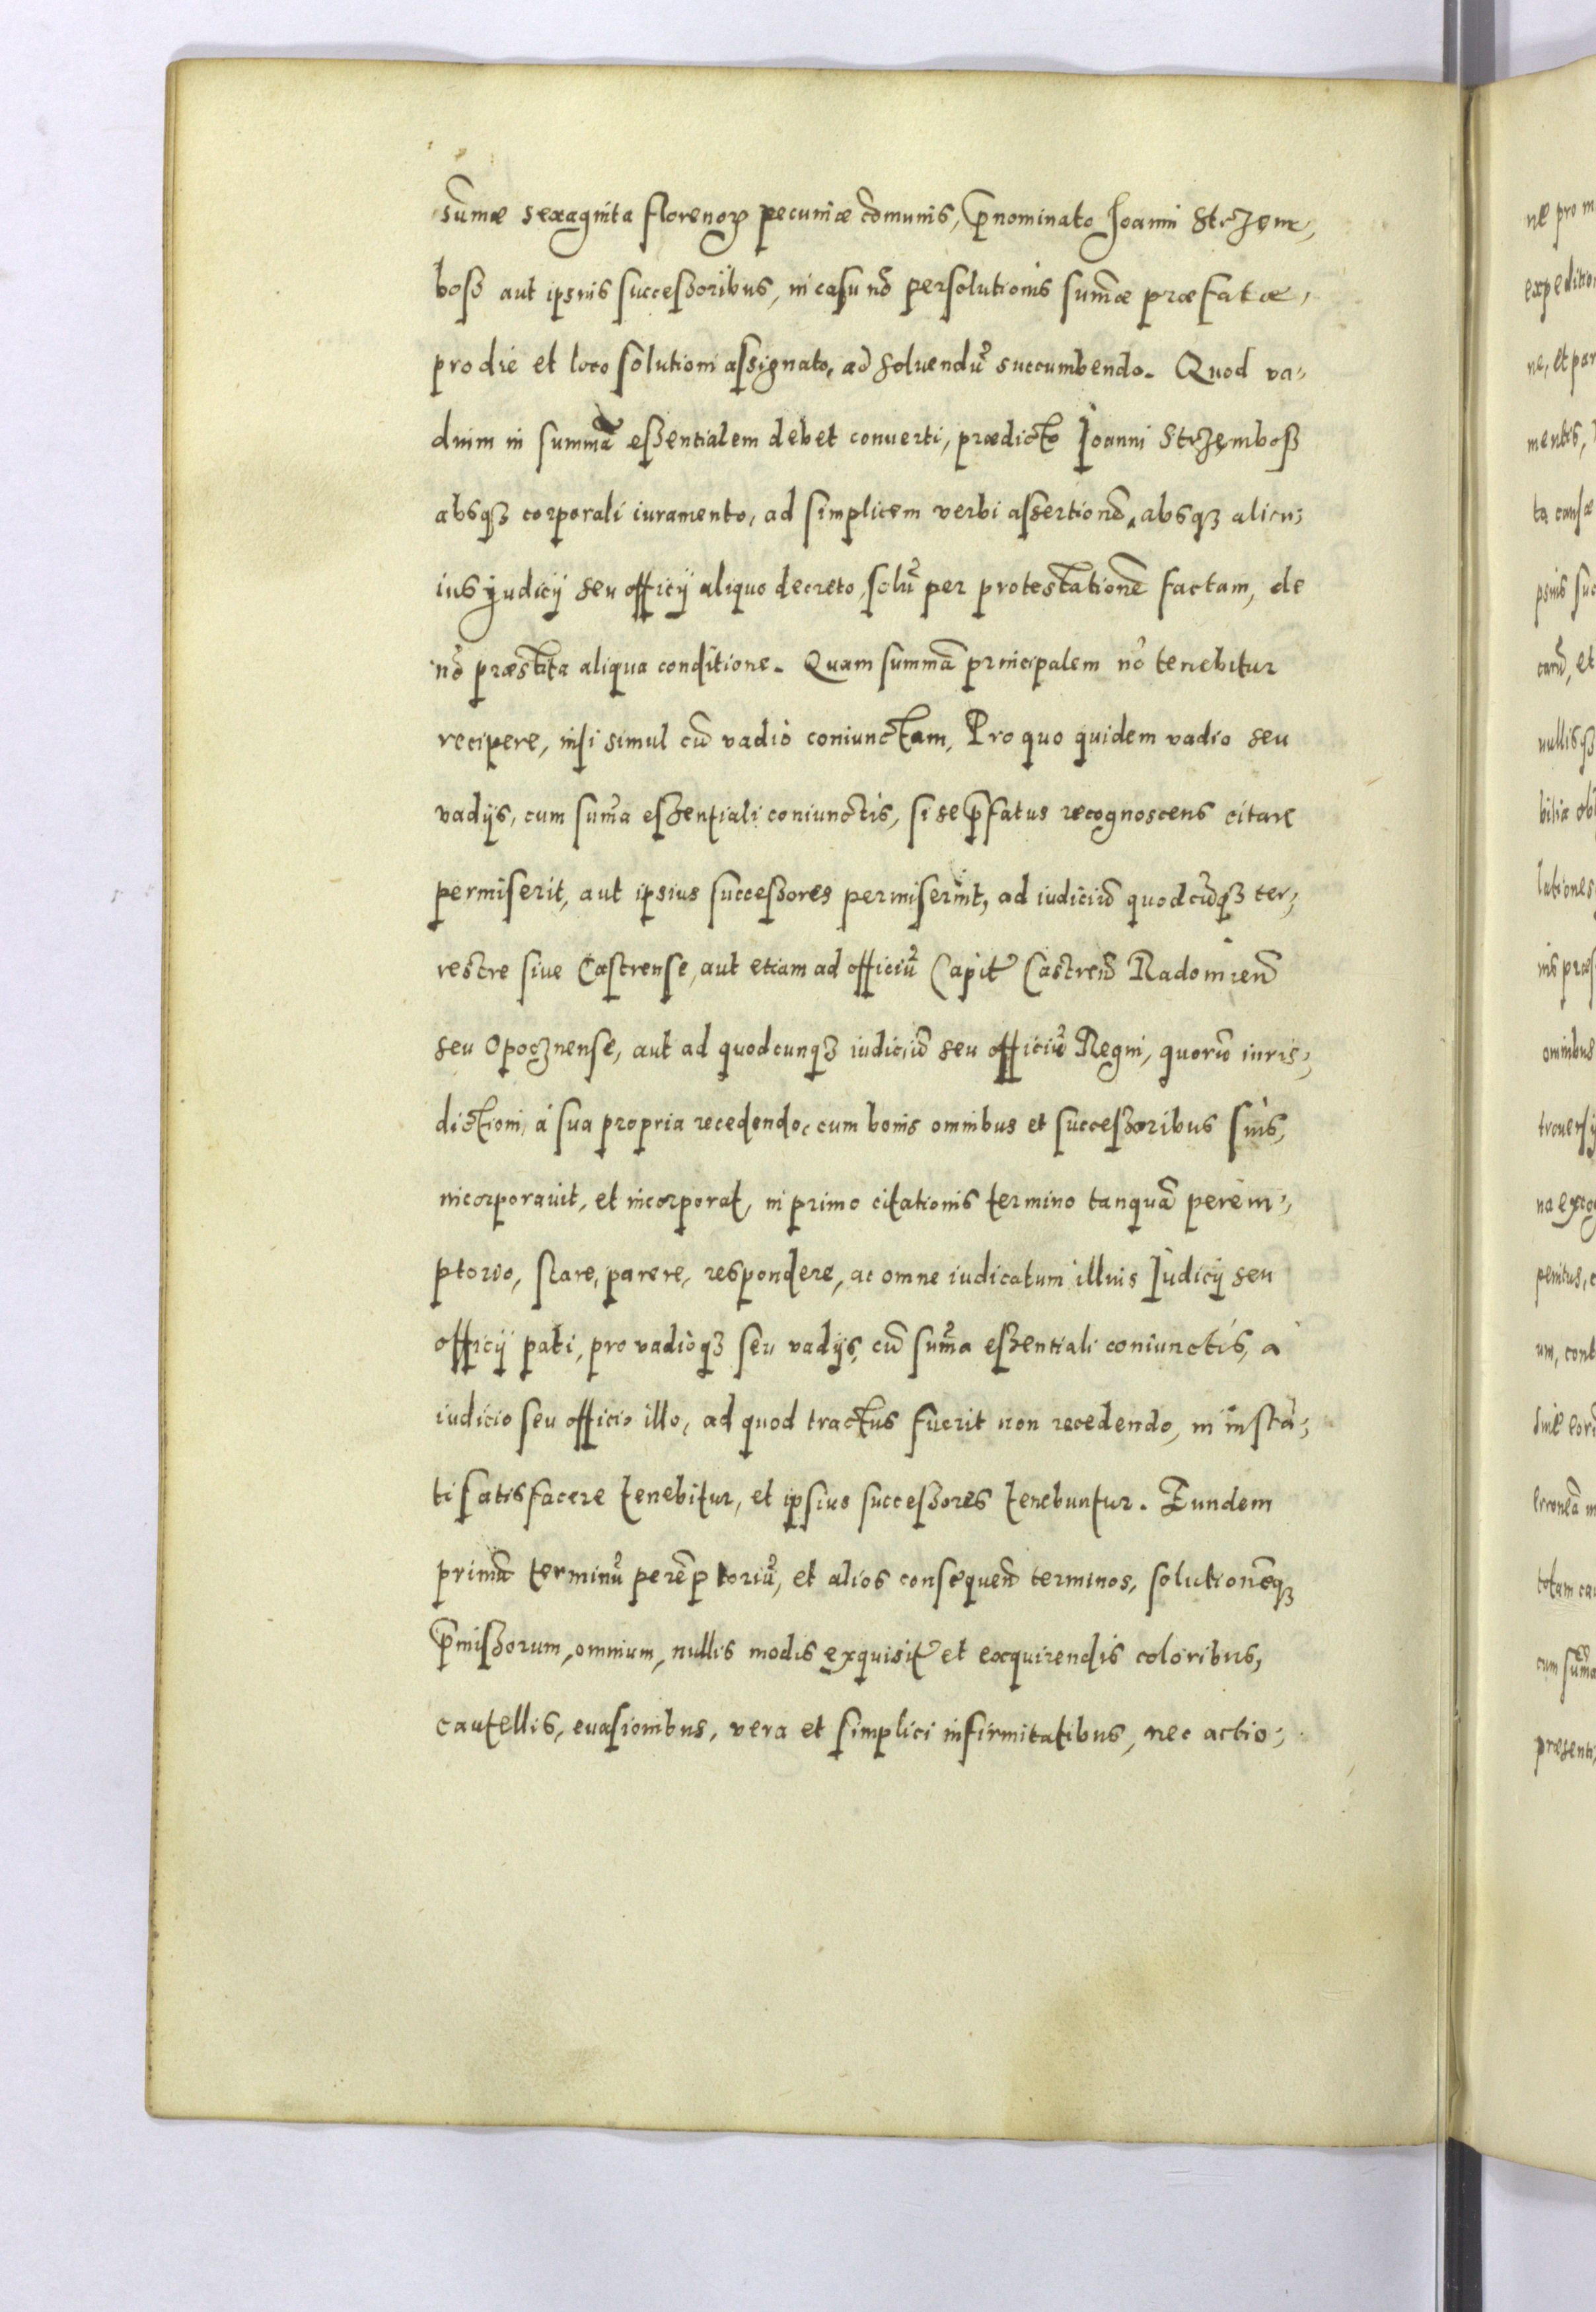 sum̃æ sexaginta florenoꝝ pecuniæ cõmunis, p̃nominato Joanni Strzem,
bosz aut ipsius successoribus, in casu nõ persolutionis sum̃æ præfatæ,
pro die et loco solutioni assignato, ad soluendũ succumbendo. Quod va,
dium in summã essentialem debet conuerti, prædicto Joanni Strzembosz
absqꝫ corporali iuramento, ad simplicem verbi assertionẽ, absqꝫ alicu,
ius judicij seu officij aliquo decreto, solũ per protestationẽ factam, de
nõ præstita aliqua conditione. Quam summã principalem nõ tenebitur
recipere, nisi simul cũ vadio coniunctam, Pro quo quidem vadio seu
vadijs, cum sum̃a essentiali coniunctis, si se p̃fatus recognoscens citare
permiserit, aut ipsius successores permiserint, ad iudiciũ quodcũqꝫ ter,
restre siue Castrense, aut etiam ad officiũ Capit̃ Castreñ Radomieñ
seu Opocznense, aut ad quodcunqꝫ iudiciũ seu officiũ Regni, quorũ iuris,
dictioni, à sua propria recedendo, cum bonis omnibus et successoribus suis,
incorporauit, et incorporat, in primo citationis termino tanquã perem,
ptorio, stare, parere, respondere, ac omne iudicatum illius Judicij seu
officij pati, pro vadioqꝫ seu vadijs, cũ sum̃a essentiali coniunctis, à
iudicio seu officio illo, ad quod tractus fuerit non recedendo, in instã,
ti satisfacere tenebitur, et ipsius successores tenebuntur. Eundem
primũ terminũ perẽptoriũ, et alios consequeñ terminos, solutionẽqꝫ
p̃missorum, omnium, nullis modis exquisit̃ et exquirendis coloribus,
cautellis, euasionibus, vera et simplici infirmitatibus, nec actio,